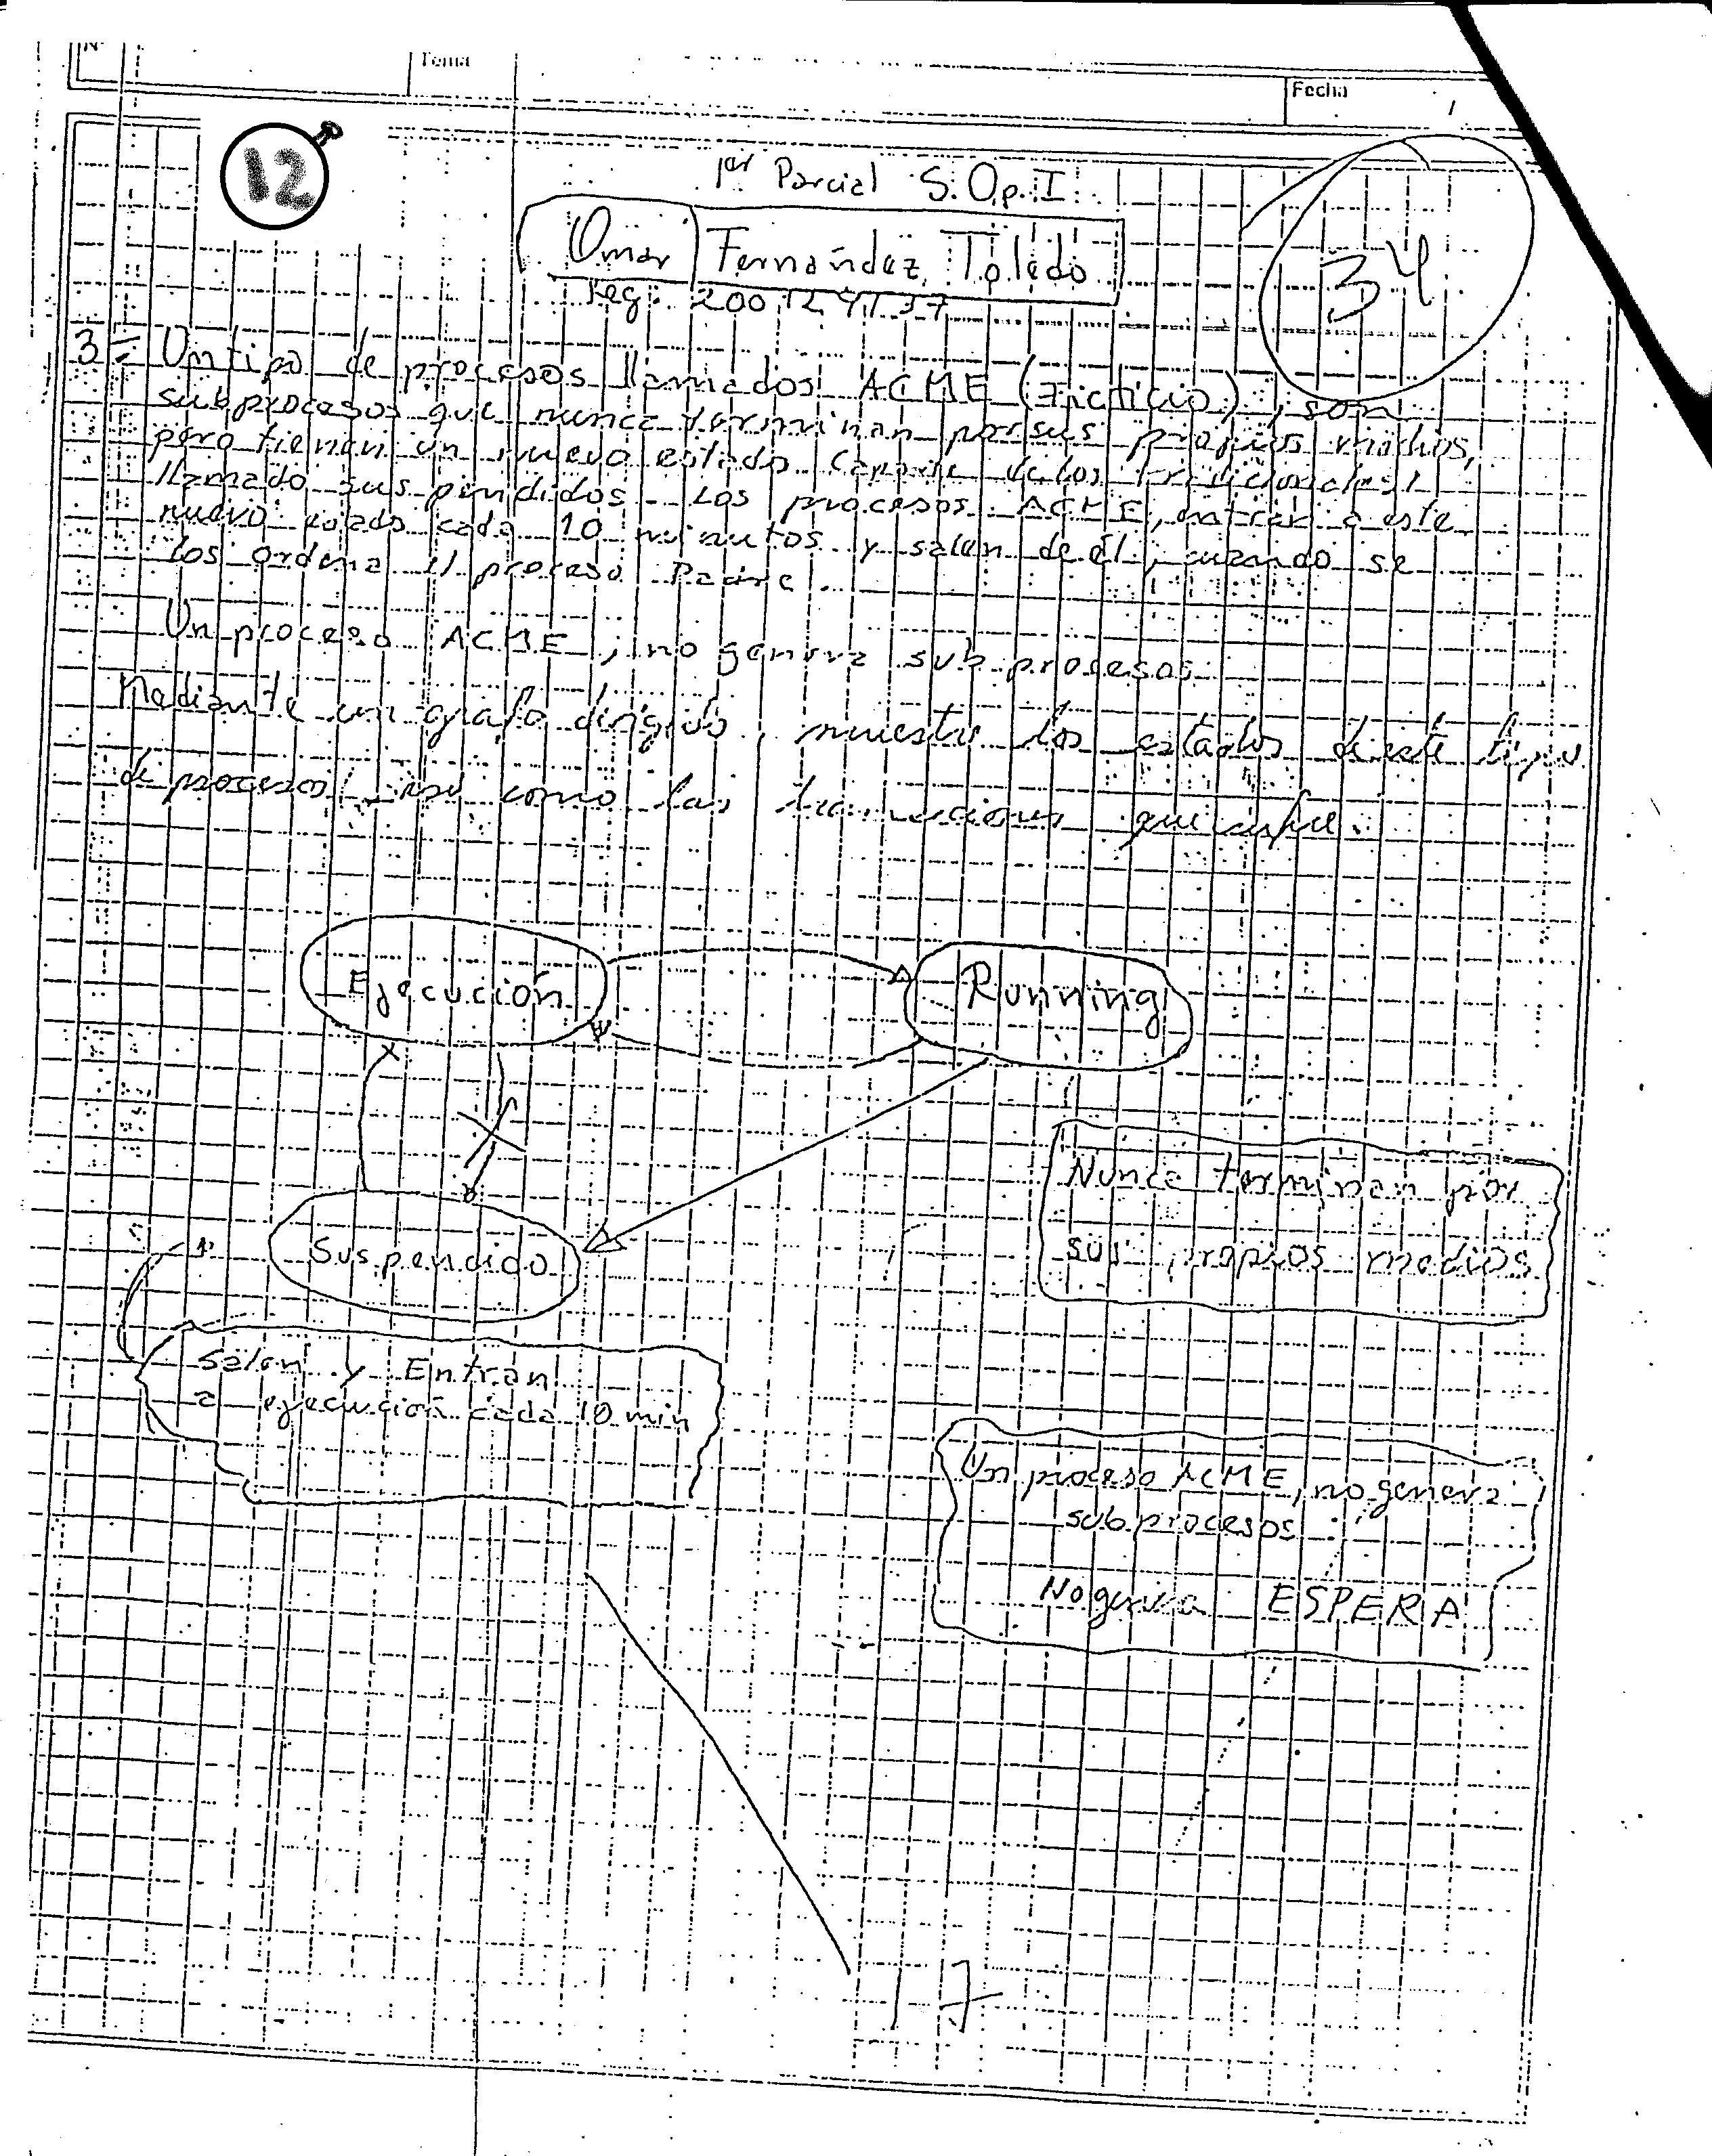 Nº
Tema
Fecha
12
1er Parcial S.Op.I
Omar Fernández Toledo
34
reg. 200124137
3= Un tipo de procesos llamados ACME (Ficticio), son
subprocesos que nunca terminan por sus propios medios,
pero tienen un nuevo estado (aparte de los tradicionales)
llamado suspendidos. Los procesos ACME, entran a este
nuevo estado cada 10 minutos y salen de él, cuando se
los ordena el proceso Padre.
Un proceso ACME, no genera subprocesos.
Mediante un grafo dirigido, muestre los estados de este tipo
de procesos, así como las transiciones que sufre.
Ejecución
Running
Nunca terminan por
sus propios medios
Suspendido
Salen y Entran
a ejecución cada 10 min
Un proceso ACME, no genera
subprocesos
No genera ESPERA
17